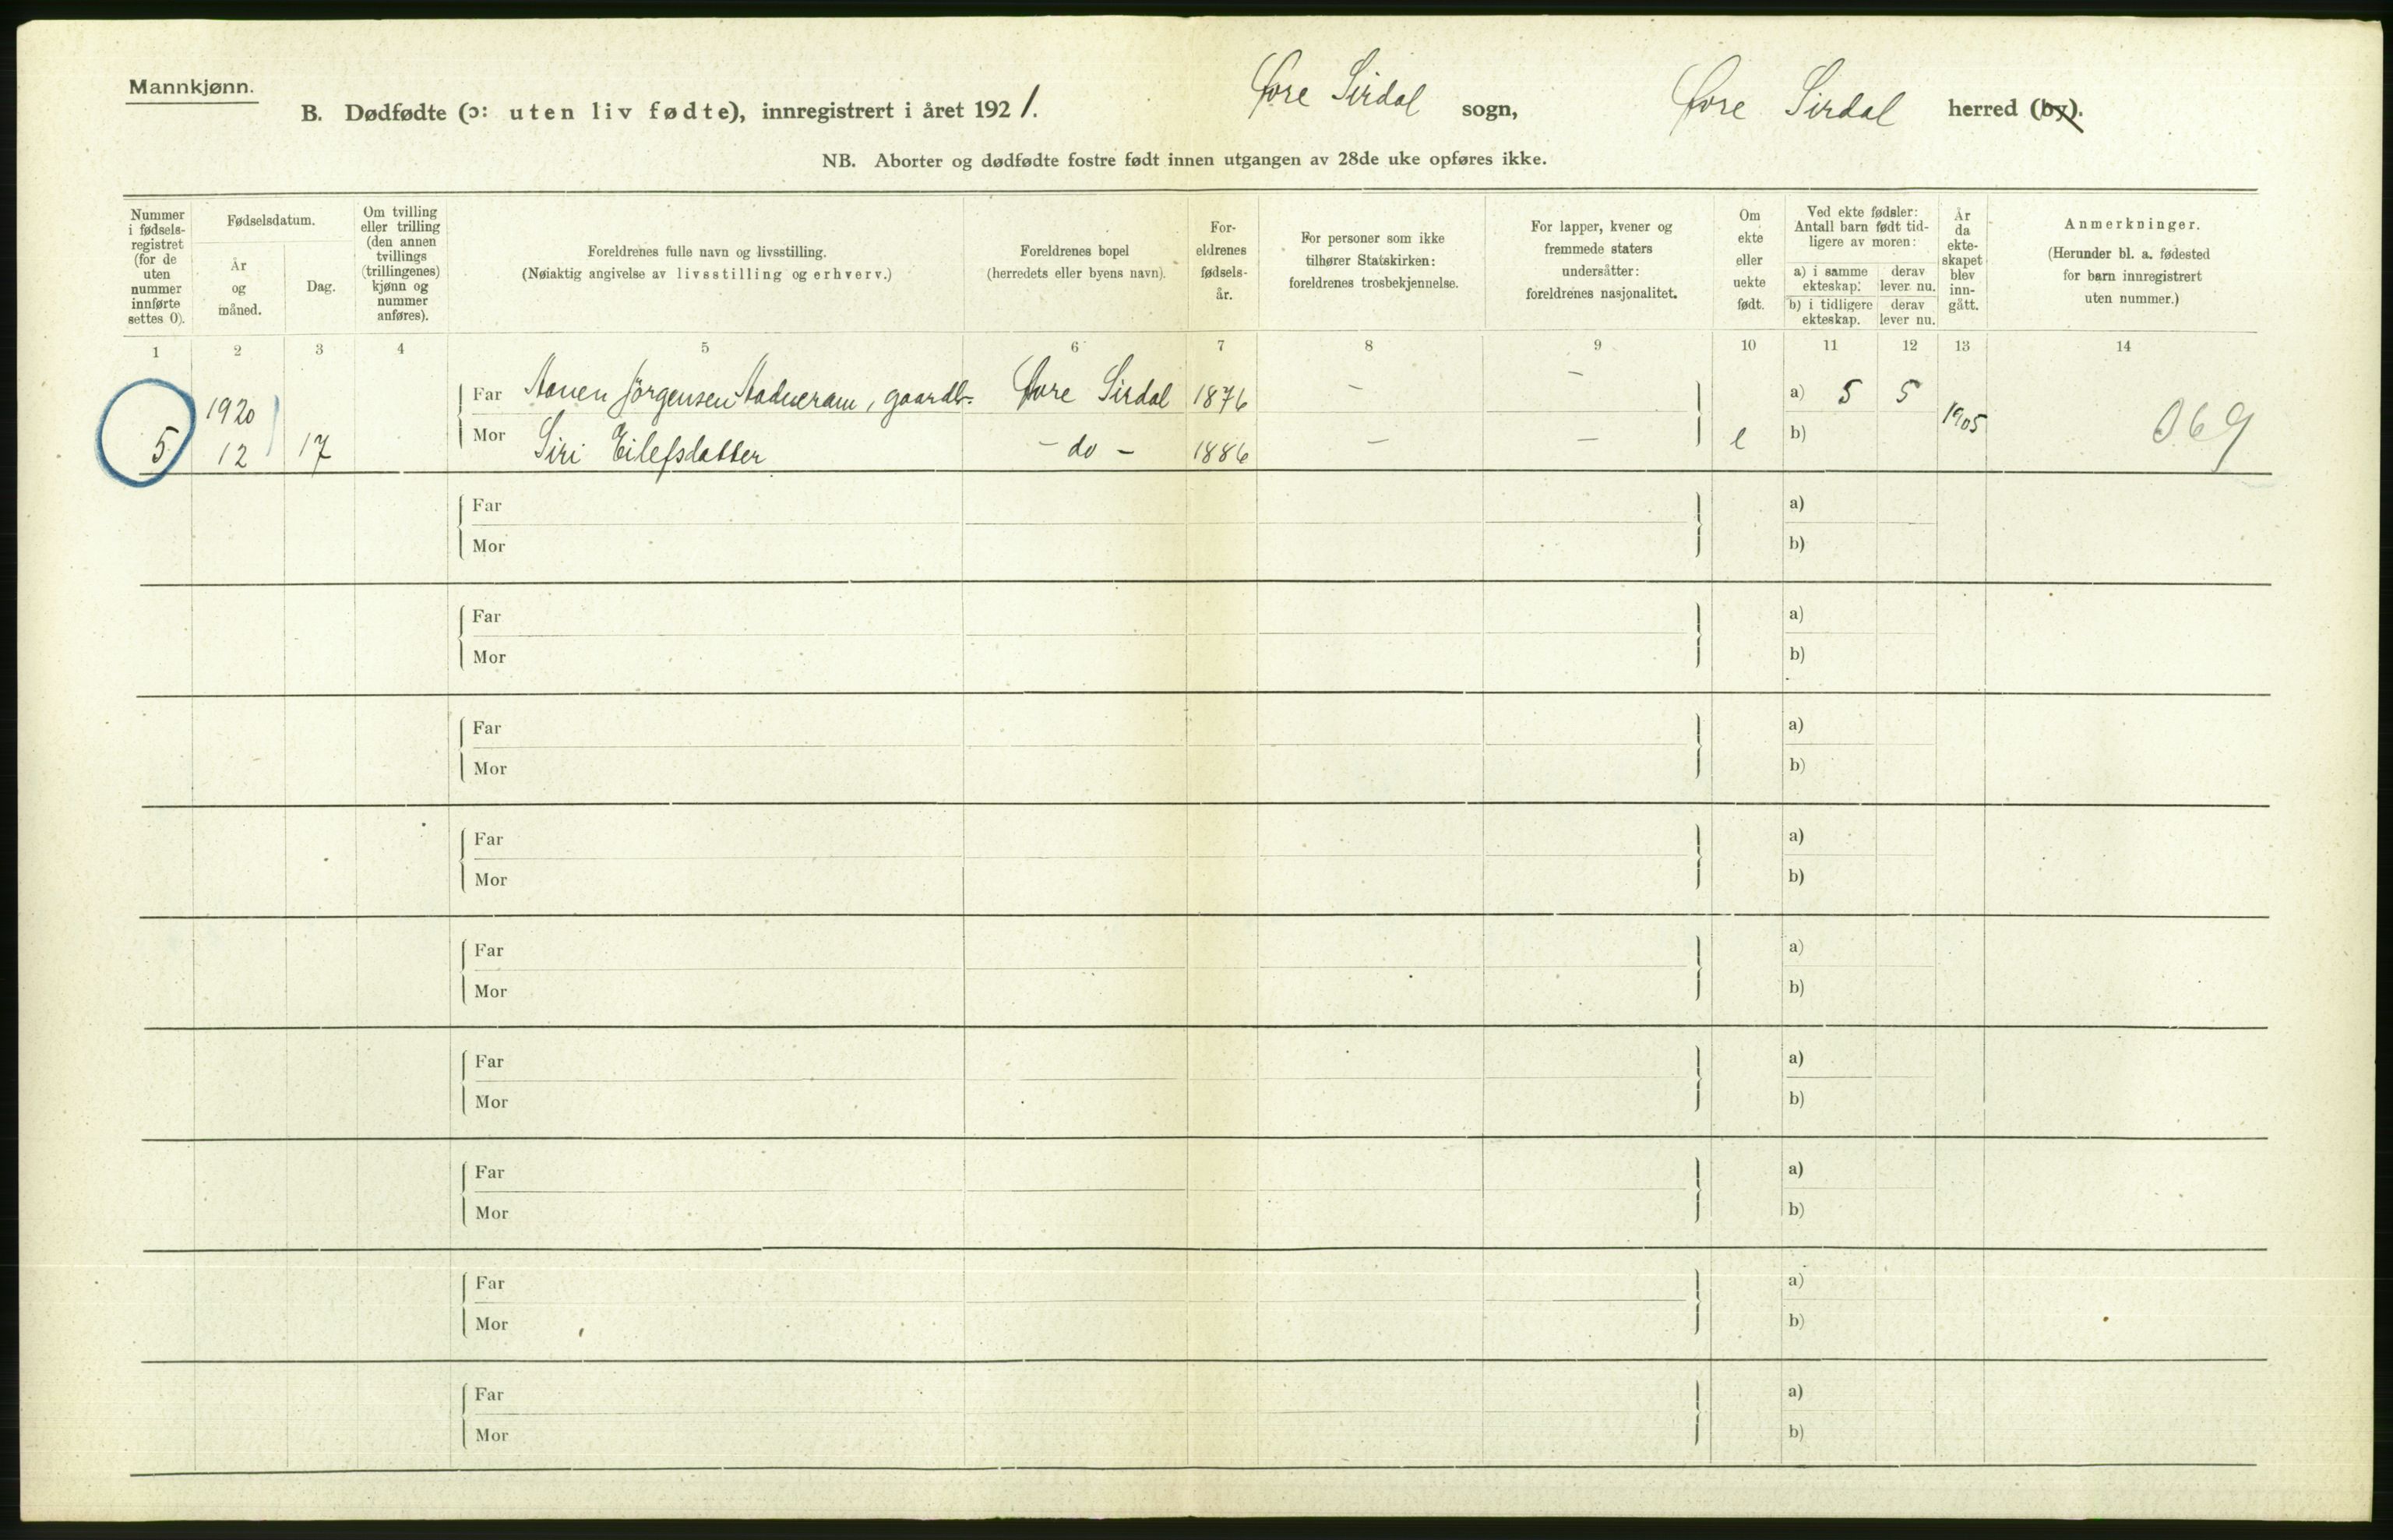 Mannkjønn.
B. Dødfødte (ɔ: uten liv fødte), innregistrert i året 1921. Øvre Sirdal sogn, Øvre Sirdal herred (by).
NB. Aborter og dødfødte fostre født innen utgangen av 28de uke opføres ikke.
Nummer i fødselsregistret (for de uten nummer innførte settes 0).
Fødselsdatum.
År og måned.
Dag.
Om tvilling eller trilling (den annen tvillings (trillingenes) kjønn og nummer anføres).
Foreldrenes fulle navn og livsstilling.
(Nøiaktig angivelse av livsstilling og erhverv.)
Foreldrenes bopel
(herredets eller byens navn).
Foreldrenes fødselsår.
For personer som ikke tilhører Statskirken: foreldrenes trosbekjennelse.
For lapper, kvener og fremmede staters undersåtter: foreldrenes nasjonalitet.
Om ekte eller uekte født.
Ved ekte fødsler: Antall barn født tidligere av moren:
a) i samme ekteskap: derav lever nu.
b) i tidligere ekteskap. derav lever nu.
År da ekteskapet blev inngått.
Anmerkninger.
(Herunder bl. a. fødested for barn innregistrert uten nummer.)
1 2 3 4 5 6 7 8 9 10 11 12 13 14
1920 Far Aanen Jörgensen, gaardb. Øvre Sirdal 1876 – – a) 5 5 1905
5 12 17 Mor Siri Eilefsdatter – do – 1886 – – e b) 069
Far a)
Mor b)
Far a)
Mor b)
Far a)
Mor b)
Far a)
Mor b)
Far a)
Mor b)
Far a)
Mor b)
Far a)
Mor b)
Far a)
Mor b)
Far a)
Mor b)